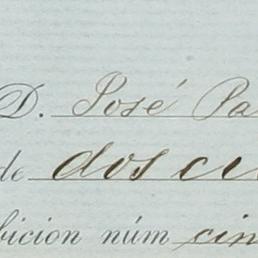 D. José Pa
de dos cie
bicion núm cin